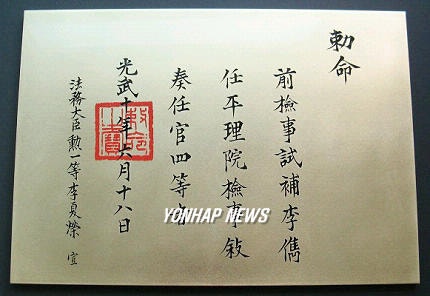 勅命
前檢事試補李儁
任平理院檢事敍
奏任官四等者
光武十年六月十八日
法務大臣勲一等李夏榮 宣
YONHAP NEWS